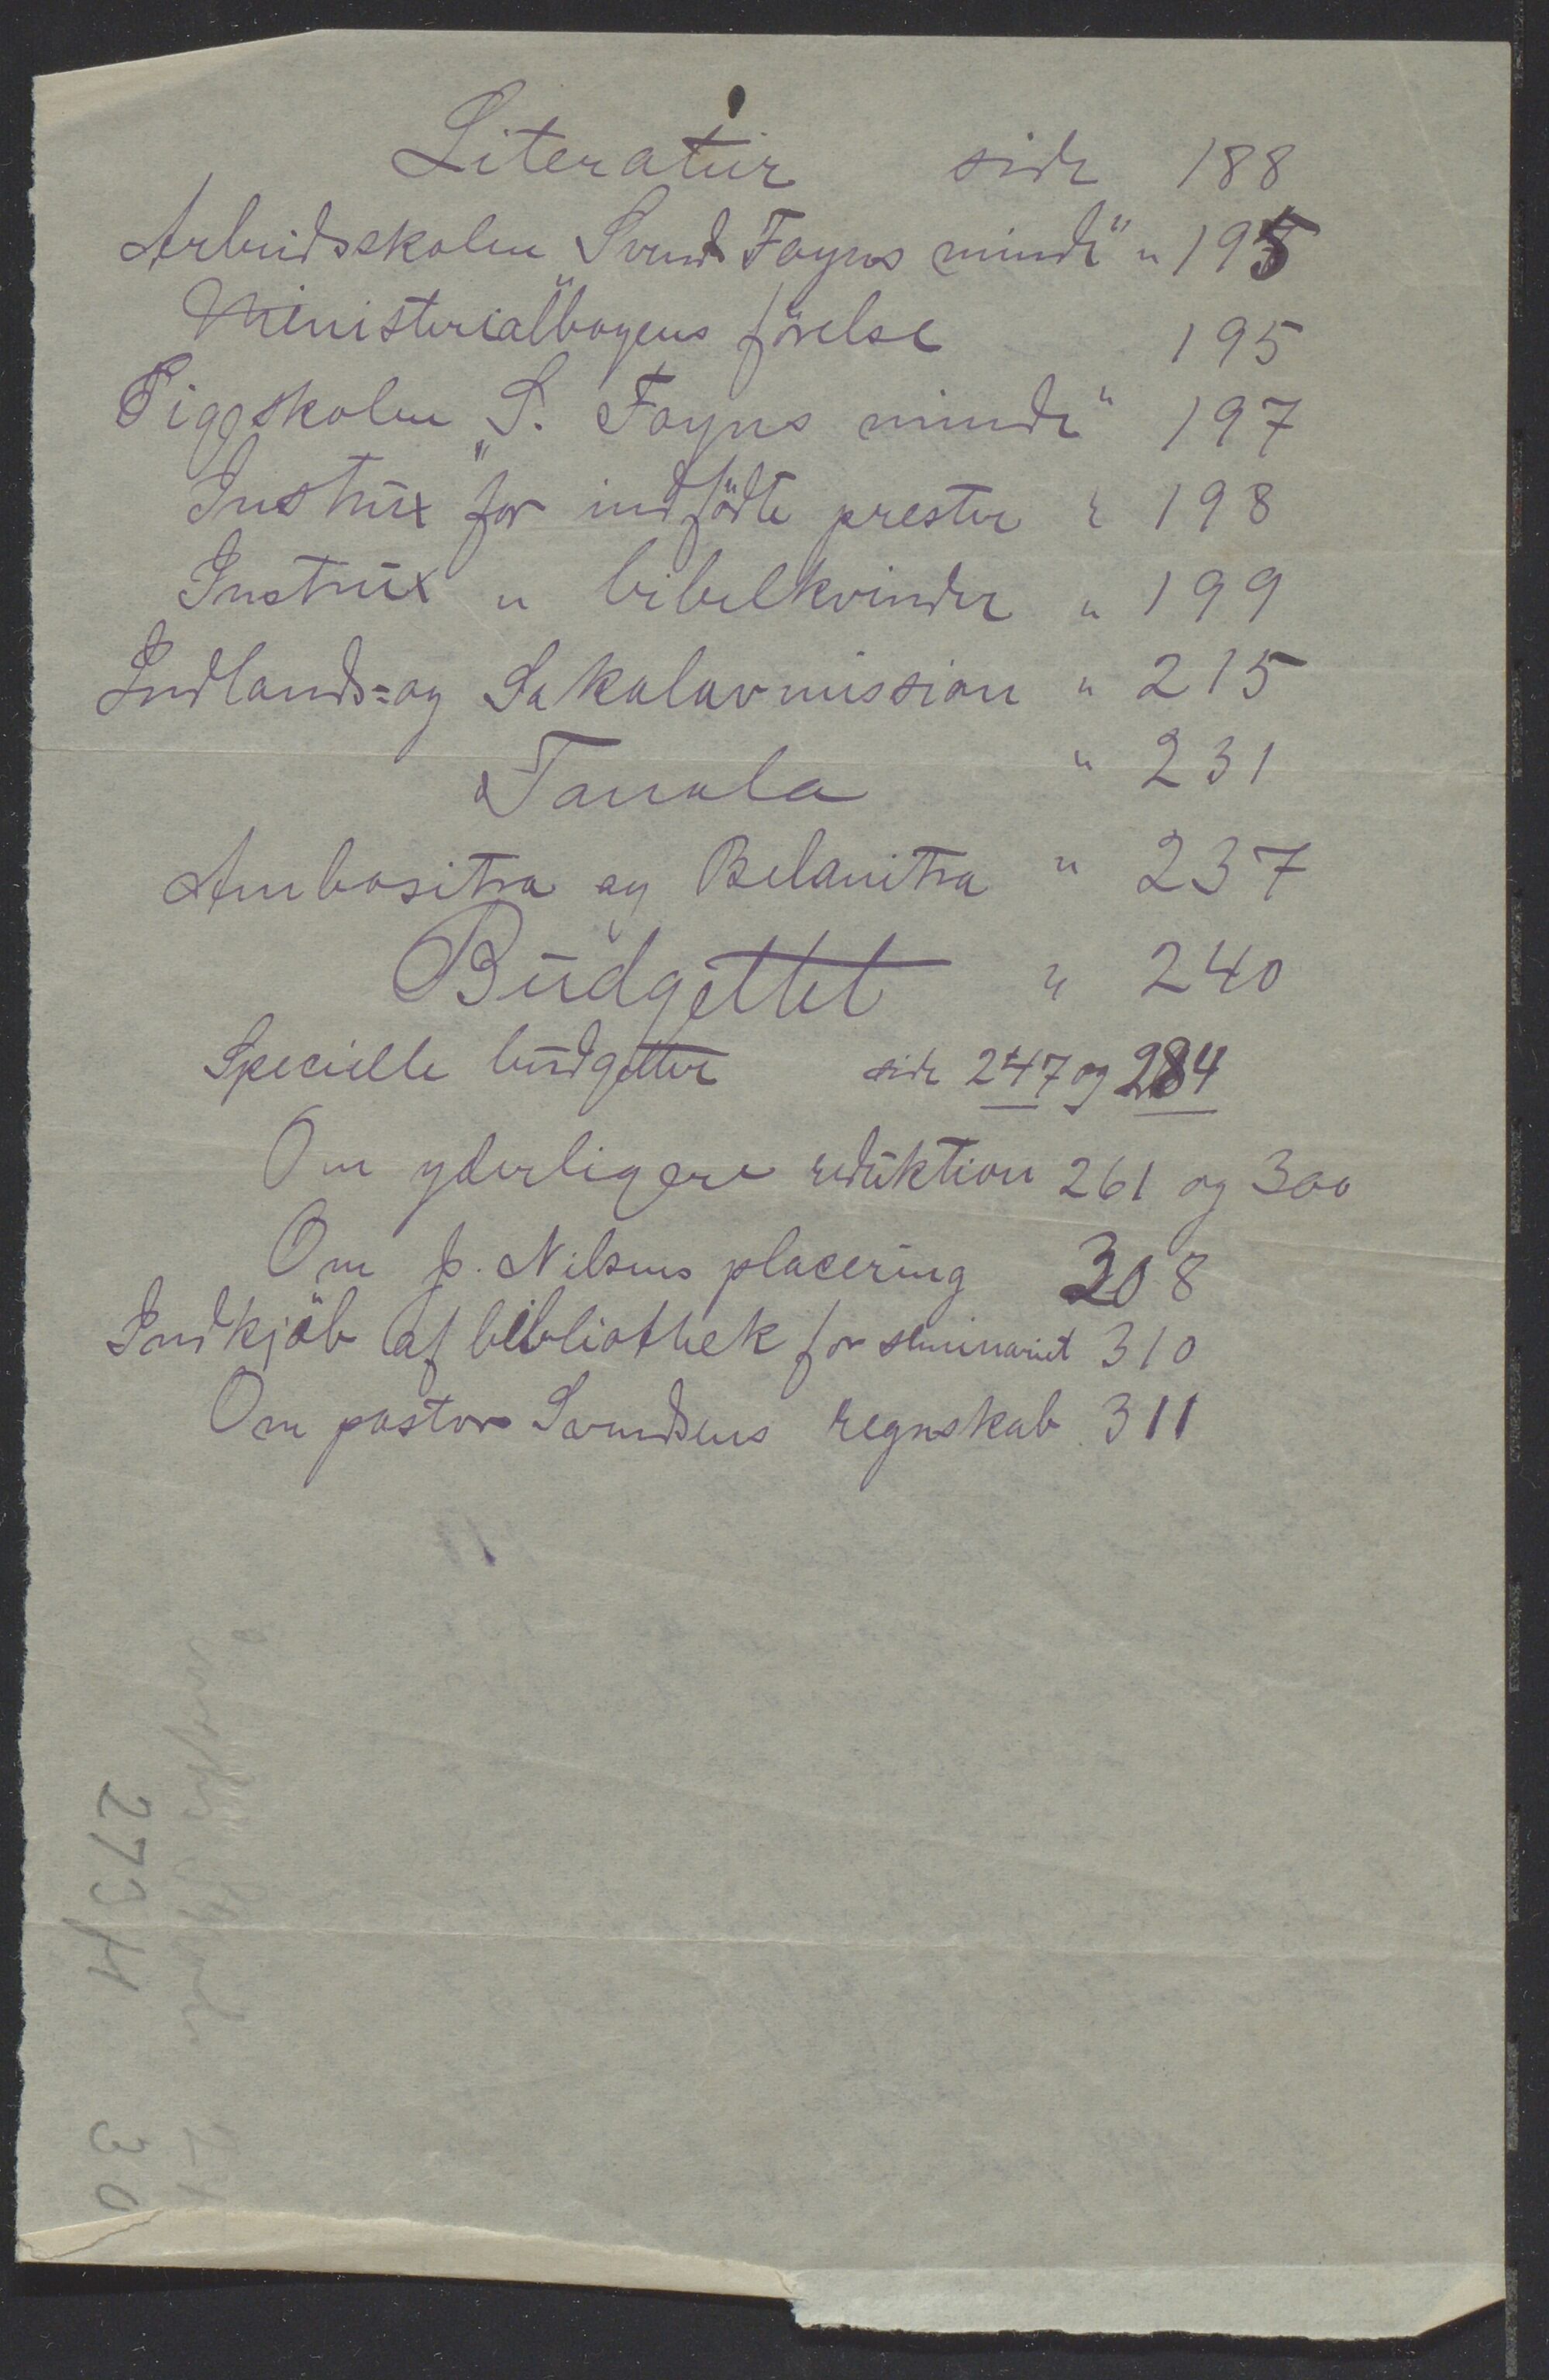 Literatur side 188
Arbeidsskolen „Svend Foyns minde" " 195
Ministerialbogens förelse 195
Pigeskolen „S. Foyns minde" 197
Instrux for indfödte prester " 198
Instrux " bibelkvinder " 199
Indlands- og Sakalavmission " 215
Tanala " 231
Ambositra og Belanitra " 237
Budgettet " 240
Specielle budgetter side 247 og 284
Om yderligere reduktion 261 og 300
Om p. Nilsens placering 308
Indkjöb af bibliothek for seminariet 310
Om pastor Svendsens regnskab 311
30